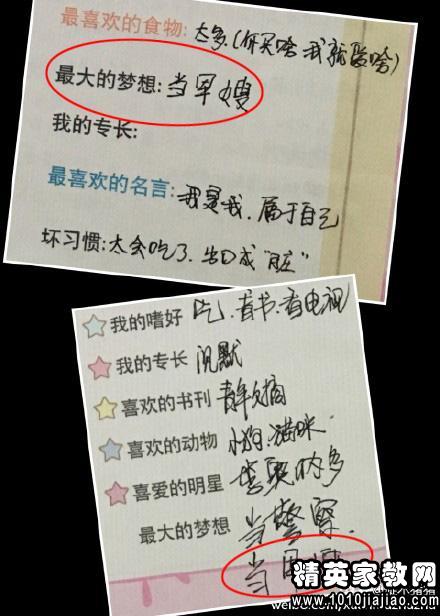 最喜欢的食物: 太多(你买啥我就爱啥)
最大的梦想: 当军嫂
我的专长:
最喜欢的名言: 我是我.属于自己
坏习惯: 太会吃了.出口成“脏”
我的嗜好 吃.看书.看电视
我的专长 沉默
喜欢的书刊 青年文摘
喜欢的动物 小狗.猫咪.
喜爱的明星 喜欢的多
最大的梦想 当警察.
当
精英家教网
www.1010jiajiao.com